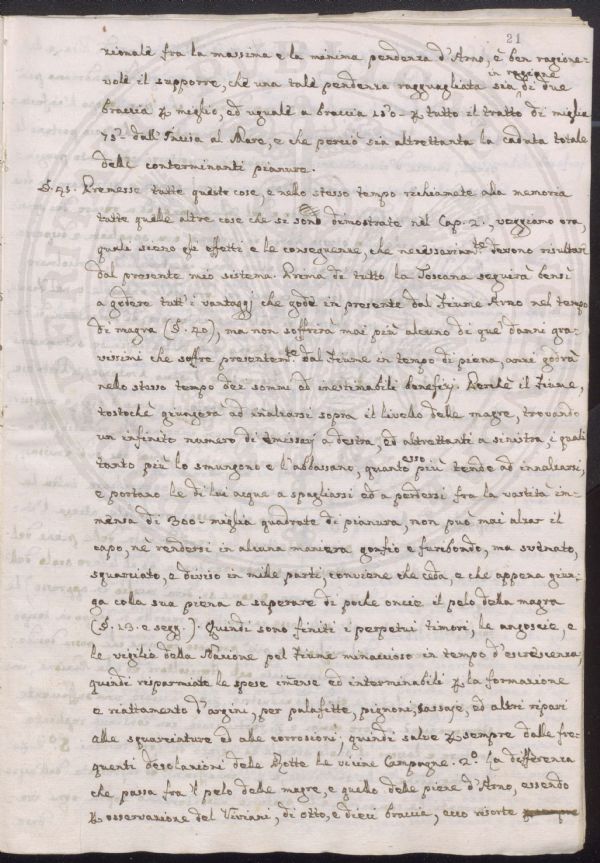 21
zionale fra la massima e la minima pendenza d'Arno, è ben ragione-
vole il supporre, che una tale pendenza ragguagliata in ragione sia di due
braccia p miglio, ed uguale a braccia 150 - p tutto il tratto di miglia
75 - dall'Incisa al Mare, e che perciò sia altrettanta la caduta totale
delle conterminanti pianure.
§. 45. Premesse tutte queste cose, e nello stesso tempo richiamate alla memoria
tutte quelle altre cose che si sono dimostrate nel Cap. 2., veggiamo ora,
quali sieno gli effetti e le conseguenze, che necessariam.te devono risultare
dal presente mio sistema. Prima di tutto la Toscana seguirà bensì
a godere tutt'i vantaggj che gode in presente dal Fiume Arno nel tempo
di magra (§. 40), ma non soffrirà mai più alcuno di que' danni gra-
vissimi che soffre presentem.te dal Fiume in tempo di piena, anzi godrà
nello stesso tempo dei sommi ed inestimabili beneficj. Perchè il Fiume,
tostochè giungerà ad inalzarsi sopra il livello delle magre, trovando
un infinito numero di Emissarj a destra, ed altrettanti a sinistra, i quali
tanto più lo smungono e l'abbassano, quanto esso più tende ad innalzarsi,
e portano le di lui acque a spagliarsi ed a perdersi fra la vastità im-
mensa di 300 - miglia quadrate di pianura, non può mai alzar il
capo, nè rendersi in alcuna maniera gonfio e furibondo, ma svenato,
squarciato, e diviso in mille parti, conviene che ceda, e che appena giun-
ga colla sua piena a superare di poche oncie il pelo della magra
(§. 23. e segg.). Quindi sono finiti i perpetui timori, le angoscie, e
le vigilie della Nazione pel Fiume minaccioso in tempo d'escrescenza,
quindi risparmiate le spese imense ed interminabili p la formazione
e riattamento d'argini, per palafitte, pignoni, sassaje, ed altri ripari
alle squarciature ed alle corrosioni; quindi salve p sempre dalle fre-
quenti desolazioni delle Rotte le vicine Campagne. 2.° La differenza
che passa fra 'l pelo delle magre, e quello delle piene d'Arno, essendo
p osservazione del Viviani, di otto, e dieci braccia, ecco risorte